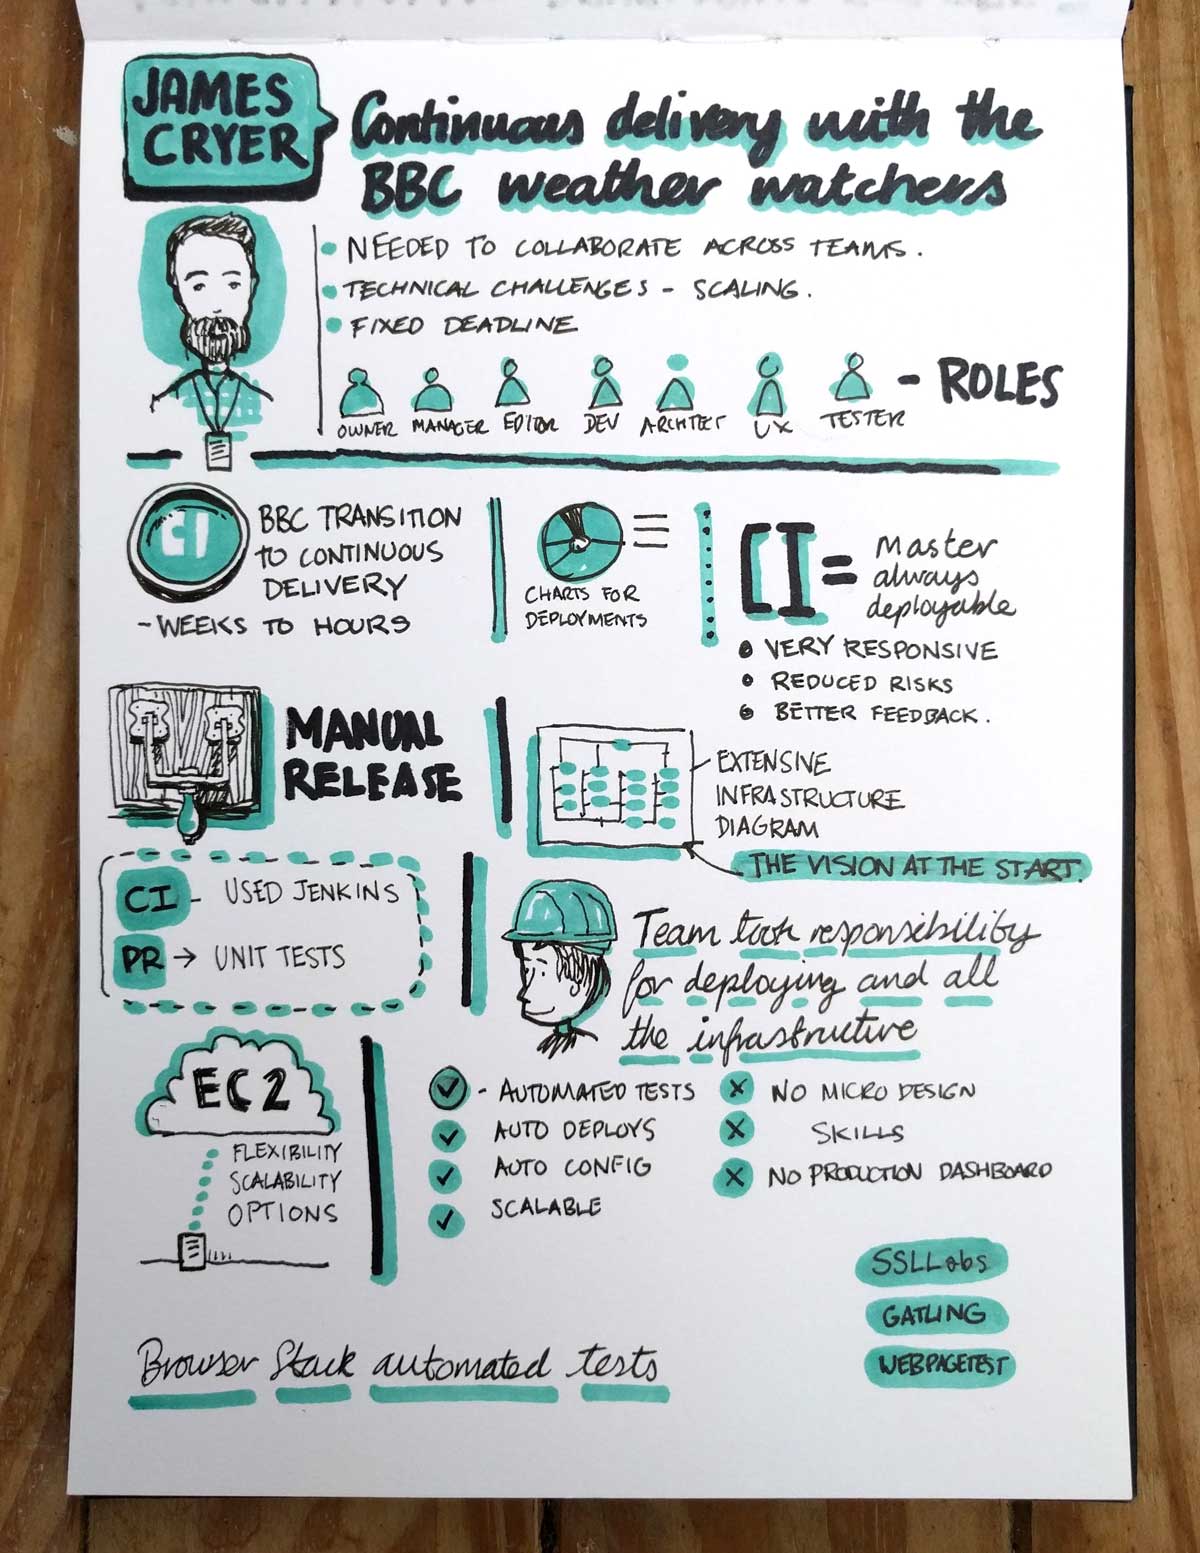 JAMES
CRYER
Continuous delivery with the
BBC weather watchers
NEEDED TO COLLABORATE ACROSS TEAMS.
TECHNICAL CHALLENGES - SCALING.
FIXED DEADLINE
OWNER MANAGER EDITOR DEV ARCHITECT UX TESTER
- ROLES
CI
BBC TRANSITION
TO CONTINUOUS
DELIVERY
- WEEKS TO HOURS
CHARTS FOR
DEPLOYMENTS
CI = Master
always
deployable
VERY RESPONSIVE
REDUCED RISKS
BETTER FEEDBACK.
MANUAL
RELEASE
EXTENSIVE
INFRASTRUCTURE
DIAGRAM
THE VISION AT THE START.
CI - USED JENKINS
PR → UNIT TESTS
Team took responsibility
for deploying and all
the infrastructure
EC2
FLEXIBILITY
SCALABILITY
OPTIONS
✓ - AUTOMATED TESTS
✓ AUTO DEPLOYS
✓ AUTO CONFIG
✓ SCALABLE
X NO MICRO DESIGN
X SKILLS
X NO PRODUCTION DASHBOARD
SSLLabs
GATLING
WEBPAGETEST
Browser Stack automated tests